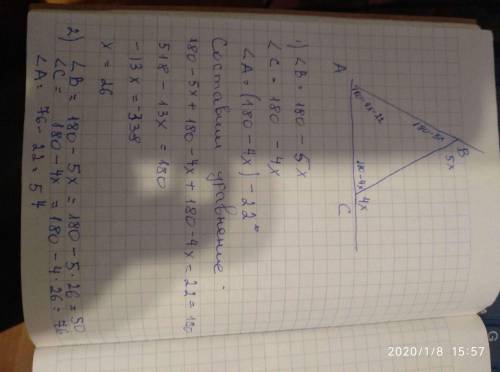 A
B
C
180-4x-22
180-5x
5x
180-4x
4x
1) ∠B = 180 - 5x
∠C = 180 - 4x
∠A = (180-4x) - 22°
Составим уравнение:
180-5x + 180-4x + 180-4x = 22 = 180
518 - 13x = 180
-13x = -338
x = 26
2) ∠B = 180 - 5x = 180 - 5·26 = 50
∠C = 180 - 4x = 180 - 4·26 = 76
∠A = 76 - 22 = 54
2020/1/8 15:57